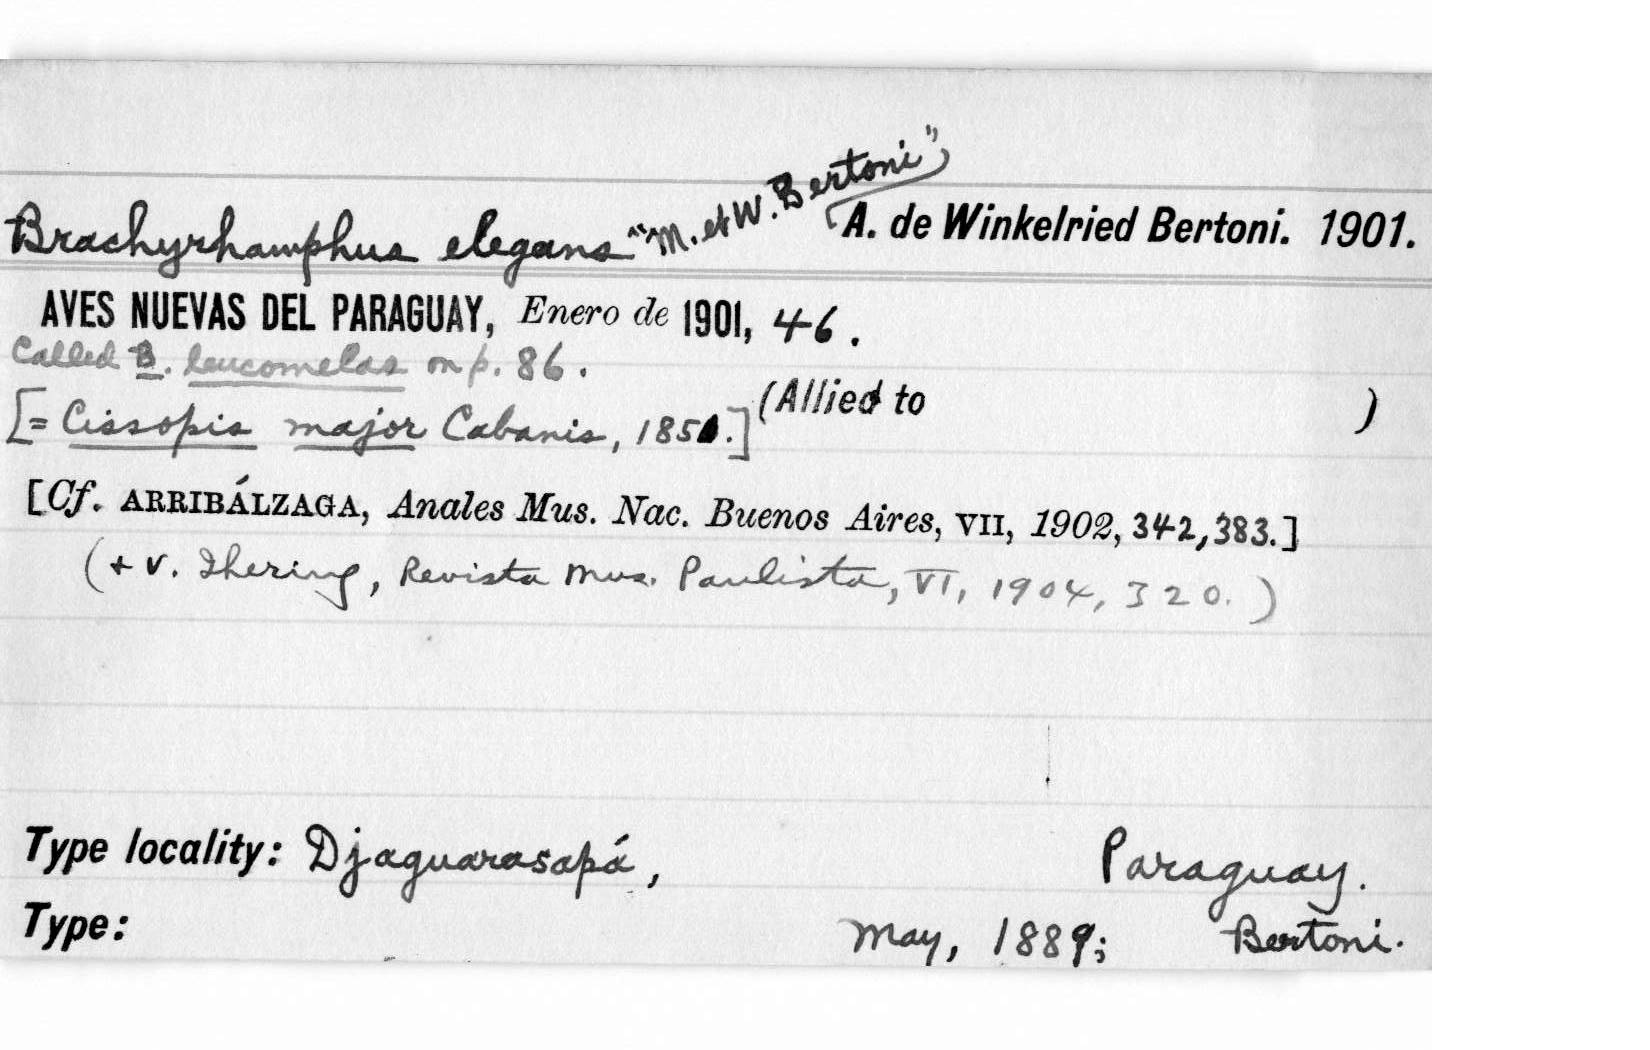 Brachyrhamphus elegans "M. et W. Bertoni" A. de Winkelried Bertoni. 1901.
AVES NUEVAS DEL PARAGUAY, Enero de 1901, 46.
Called B. leucomelas on p. 86.
(Allied to )
[= Cissopis major Cabanis, 1851.]
[Cf. ARRIBÁLZAGA, Anales Mus. Nac. Buenos Aires, VII, 1902, 342, 383.]
(+ v. Ihering, Revista Mus. Paulista, VI, 1904, 320.)
Type locality: Djaguarasapá, Paraguay.
Type: May, 1889; Bertoni.